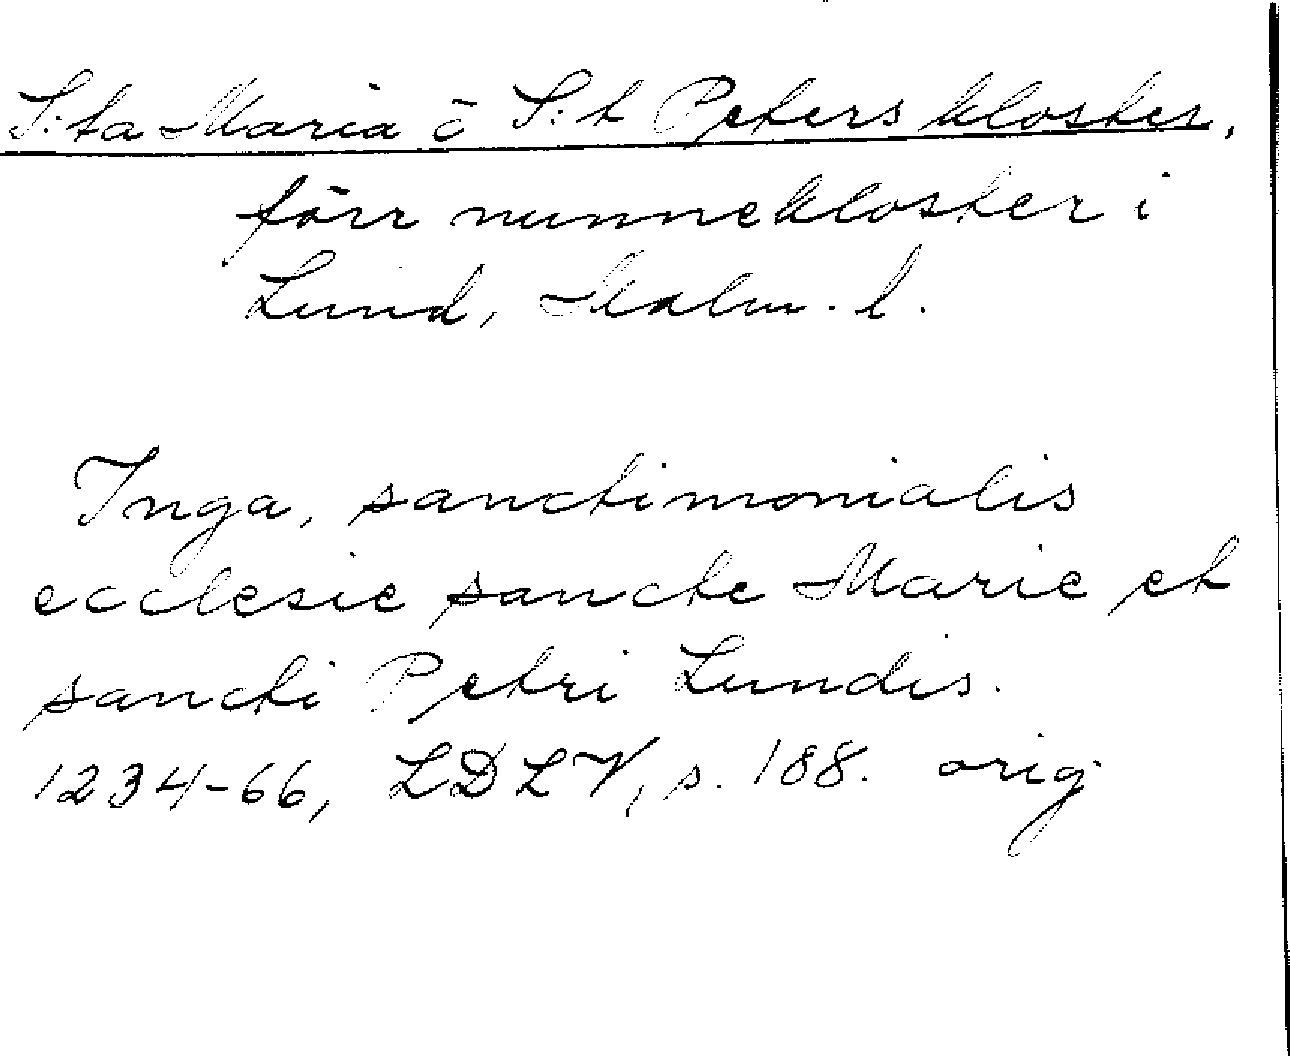 S:ta Maria o S:t Peters kloster,
förr nunnekloster i
Lund, Malm. l.
Inga, sanctimonialis
ecclesie sancte Marie et
sancti Petri Lundis.
1234-66, LDLV, s. 188. orig